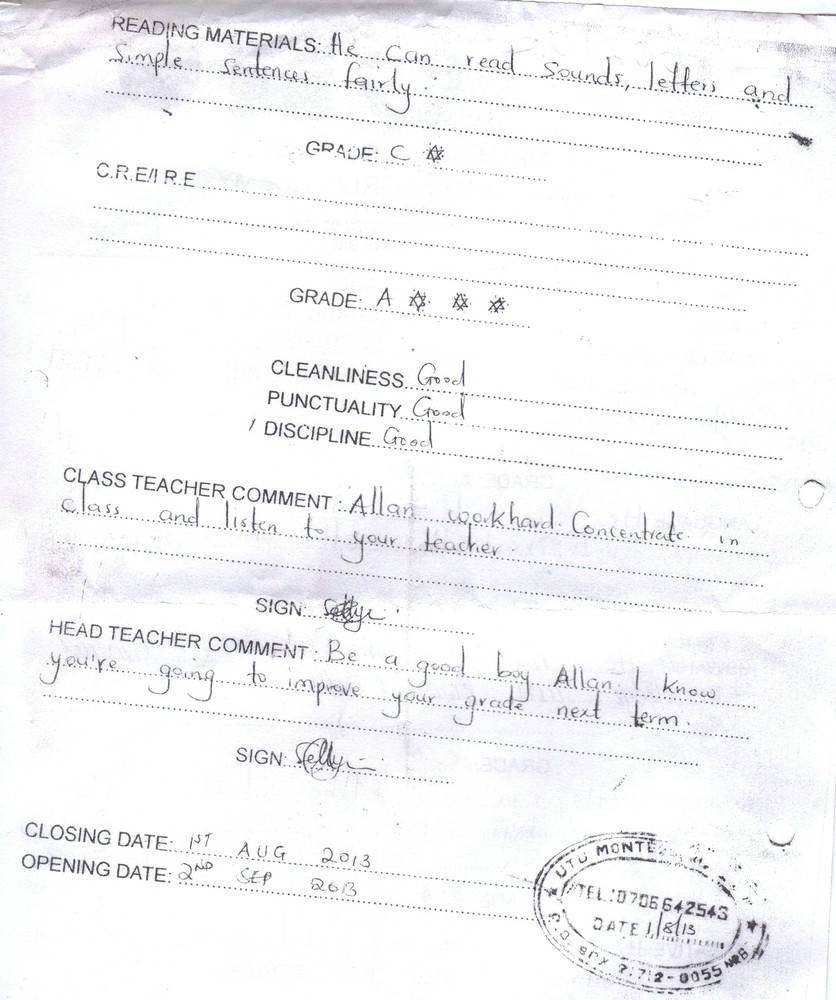 READING MATERIALS: He can read sounds, letters and
simple sentences fairly.
GRADE: C
C.R.E/I R.E
GRADE: A
CLEANLINESS Good
PUNCTUALITY Good
DISCIPLINE Good
CLASS TEACHER COMMENT: Allan workhard. Concentrate in
class and listen to your teacher
SIGN:
HEAD TEACHER COMMENT: Be a good boy Allan. I know
you're going to improve your grade next term.
SIGN:
CLOSING DATE: 1ST AUG 2013
OPENING DATE: 2ND SEP 2013
UTU MONTE
TEL: 0706642543
DATE 1/8/13
P.O. BOX 21712-0055 NRB